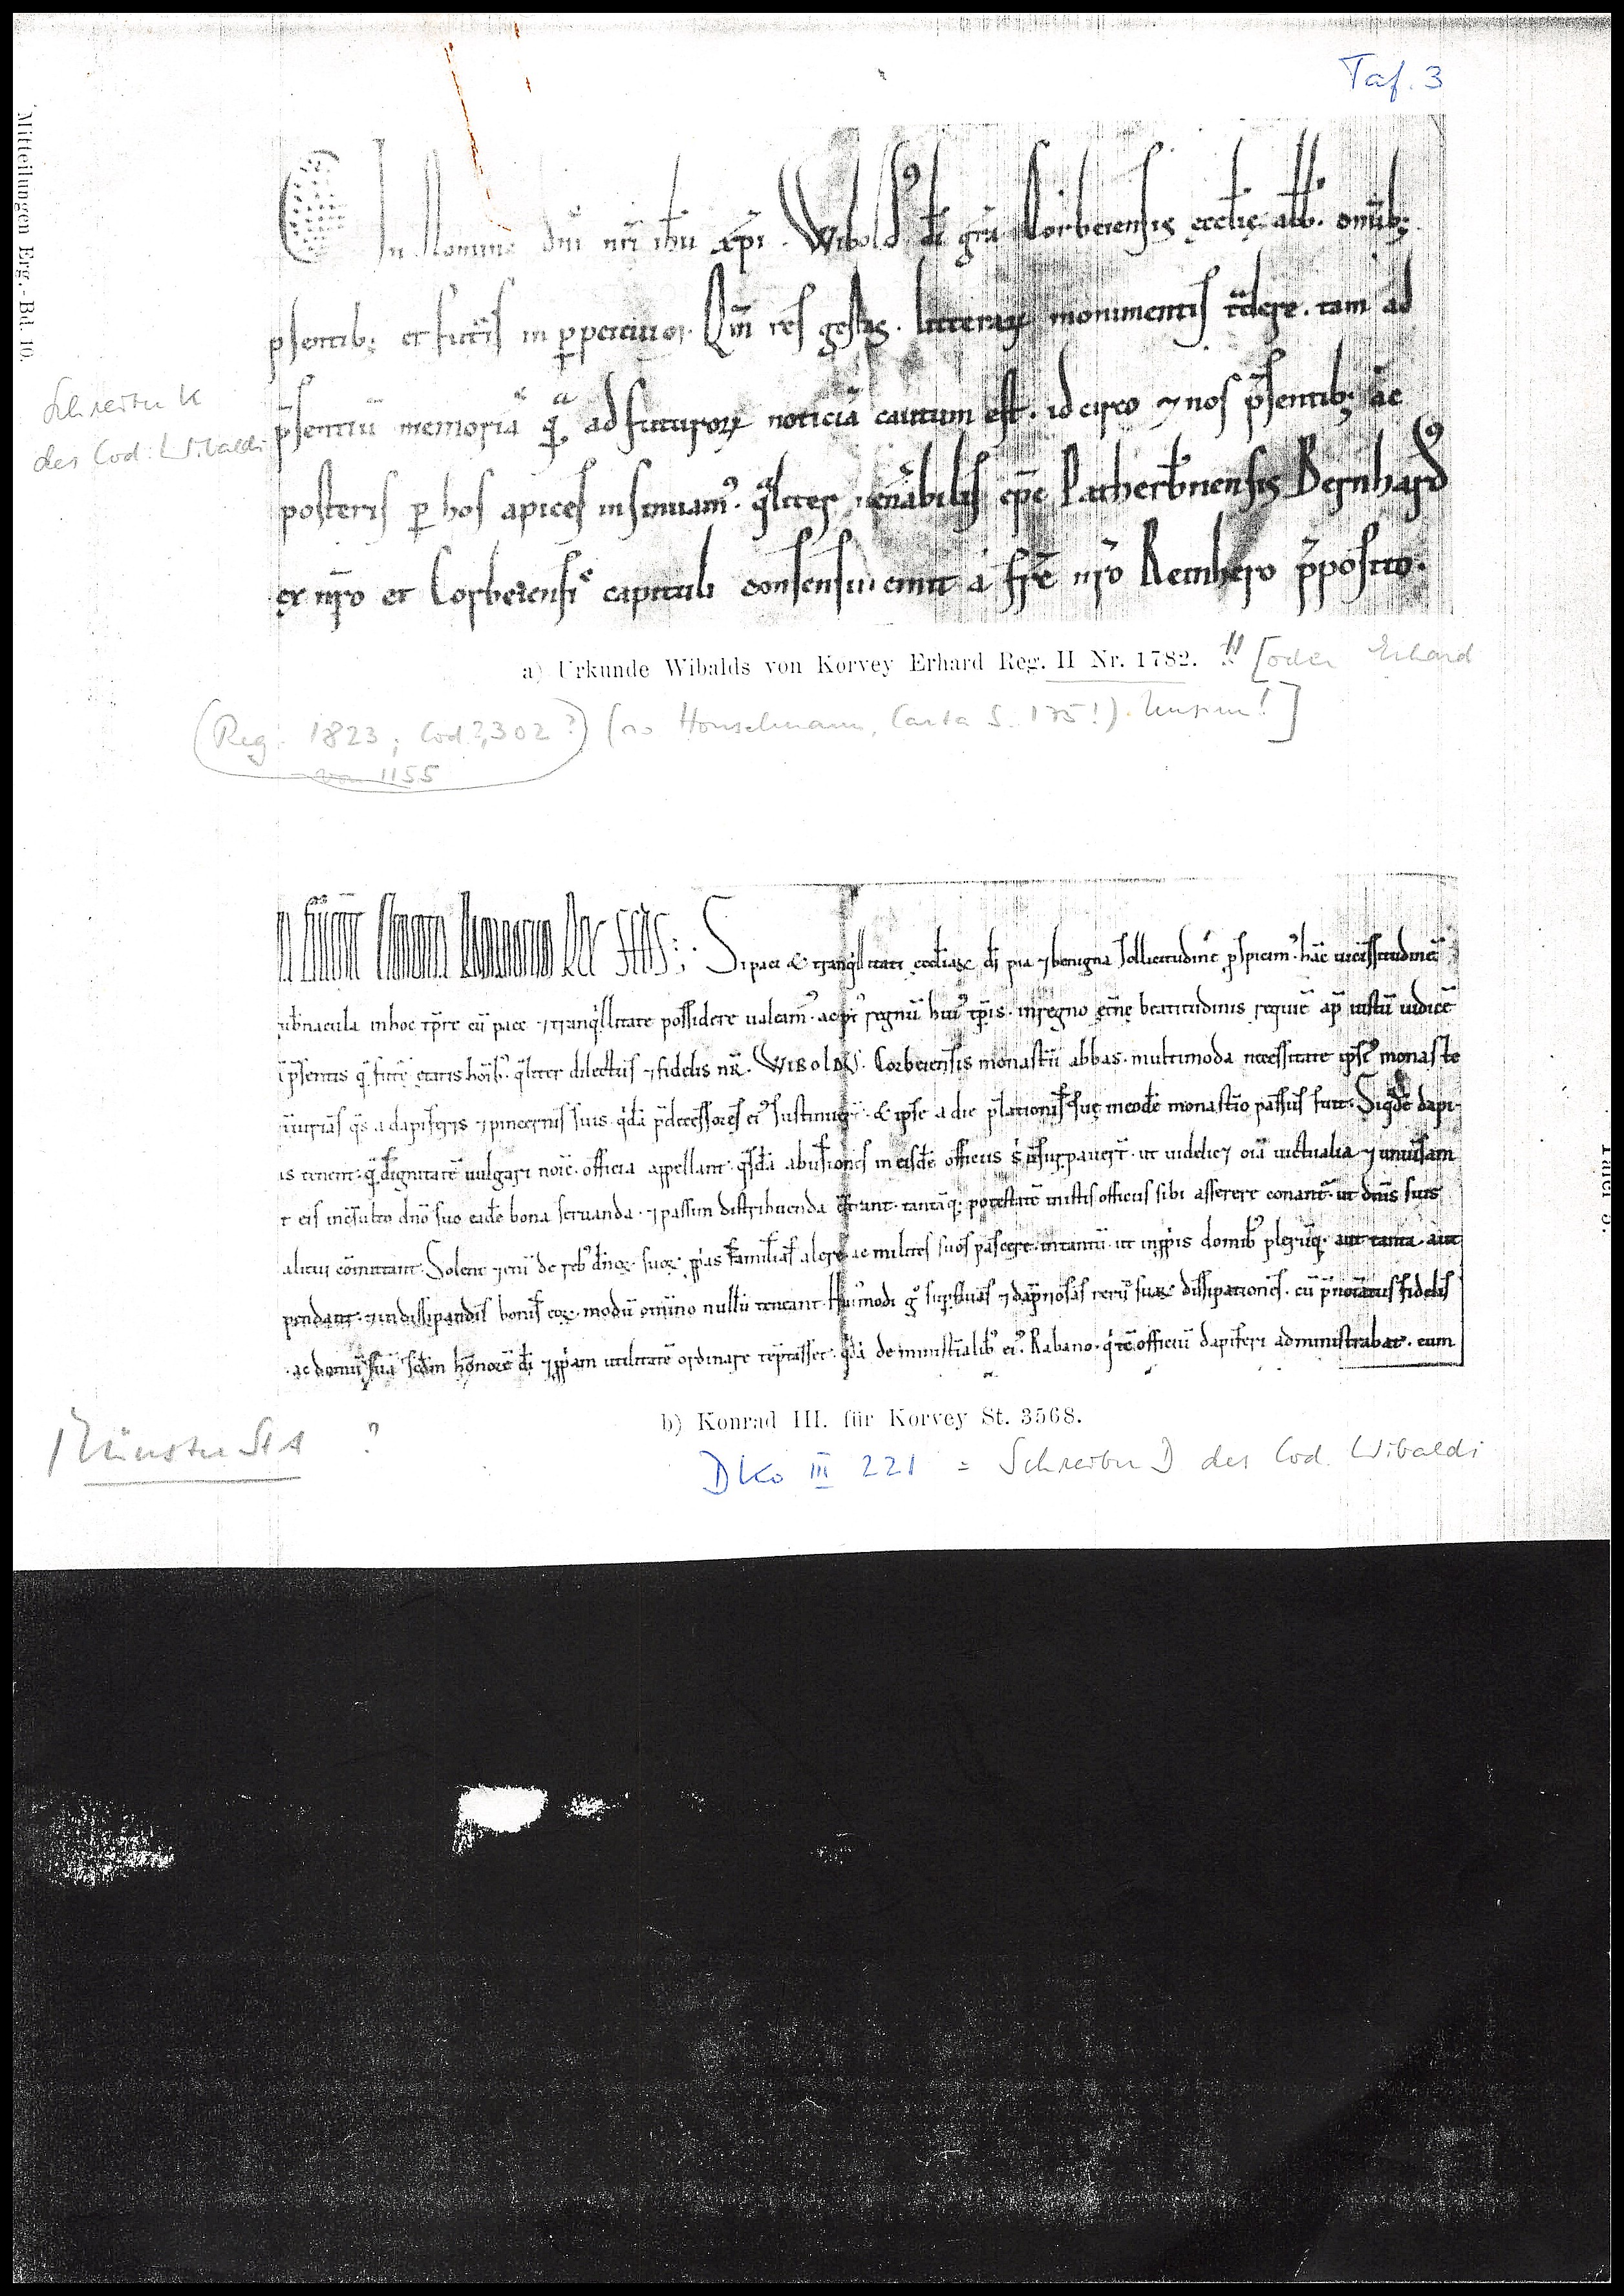 Taf. 3
Mitteilungen Erg.-Bd. 10.
In Nomine dn̄i nr̄i ih̄u xp̄i. Wibold' dī gr̄a Corbeiensis ęccl̄ię abb. omīb;
p̄sentib; et futuris in perpetuum. Qm̄ res gestas. litterarꝝ monimentis tradere. tam ad
p̄sentiū memoriā quā ad futurorꝝ noticiā cautum est. id circo ⁊ nos p̄sentib; ac
posteris ꝑ hos apices insinuam'. qͣliter uenābilis ep̄c Patherbrnensis Bernhard'
ex nr̄o et Corbeiensis capituli consensu emit a fr̄e nr̄o Reinhero p̄posito.
Schreiber K
des Cod. Wibaldi
a) Urkunde Wibalds von Korvey Erhard Reg. II Nr. 1782. !! [oder Erhard
(Reg. 1823; Cod. 2,302?) (so Honselmann, Carta S. 175!). Unsinn!]
von 1155
Rex scd̄s: Si paci & tranqͥllitati eccl̄iarꝝ dī pia ⁊ benigna sollicitudine ꝑspicim'. hāc uicissitudinē
in hoc tp̄re cū pace ⁊ tranqͥllitate possidere ualeam'. ac pͦ regnū hui' tp̄is. in regno ęt̄nę beatitudinis requiē ap̄ iustū iudicē
p̄sentis qͣ futurę ętatis hoīb'. qͣliter dilectus ⁊ fidelis nr̄. WIBOLD'. Corbeiensis monast̄ii abbas. multimoda necessitate ipsi' monaste
iniurias qͣs a dapiferis ⁊ pincernis suis qͥdā p̄decessores ei' sustinuerunt. & ipse a die p̄lationis suę in eodē monast̄io passus fuit. Siqͥdē dapi-
is tenent. qͥ dignitatē uulgari noīe. officia appellant. qͣsdā abusiones in eisdē officiis s' usurpauer̄t. ut uidelicet oīa uictualia ⁊ uniūsam
t eis inconsulto dn̄o suo eadē bona seruanda. ⁊ passim distribuenda tantāq; potestatē in istis officiis sibi asserere conant̄. ut dn̄is suis
alicui cōmittant. Solent ⁊enī de reb' dn̄orꝝ suorꝝ pp̄as familias alere ac milites suos pascere. in tantū. ut in pp̄iis domib' plerūq; aut tanta. aut
pendant. ⁊ in dissipandis bonis eorꝝ. modū omīno nullū teneant. Hui'modi gͦ suꝑfluas ⁊ dāpnosas rerū suarꝝ dissipationes. cū p̄noīatus fidelis
ac domū suā scd̄m honorē dī ⁊ pp̄iam utilitatē ordinare tēptasset. qͥdā de minist̄ialib' ei'. Rabano. qͥ tc̄ officiū dapiferi administrabat. eum
Tafel 3.
b) Konrad III. für Korvey St. 3568.
Münster StA ?
DKo III 221 = Schreiber D des Cod. Wibaldi